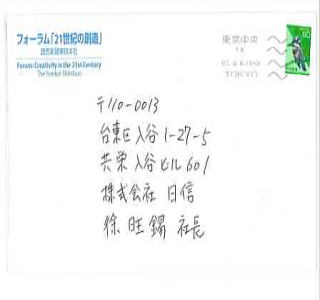 フォーラム「21世紀の創造」
読売新聞東京本社
Forum: Creativity in the 21st Century
The Yomiuri Shimbun
東京中央
TOKYO
80
〒110-0013
台東区入谷1-27-5
共栄入谷ビル601
株式会社 日信
徐 旺錫 社長